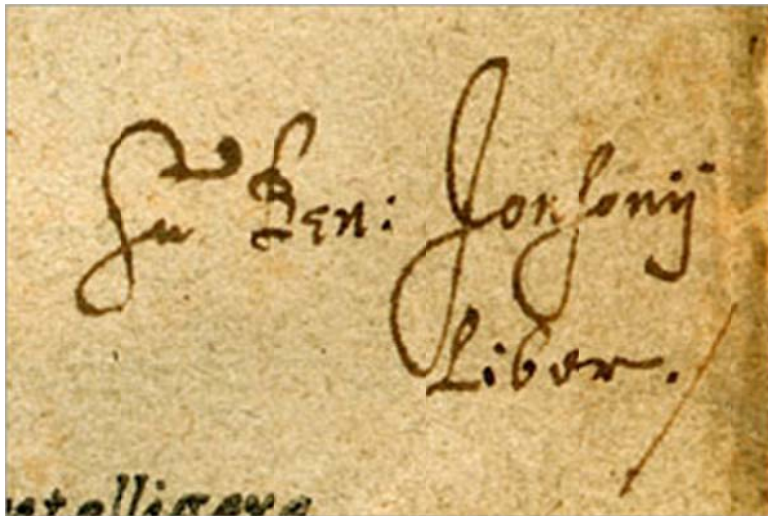 Su Ben: Jonsonij
Liber.